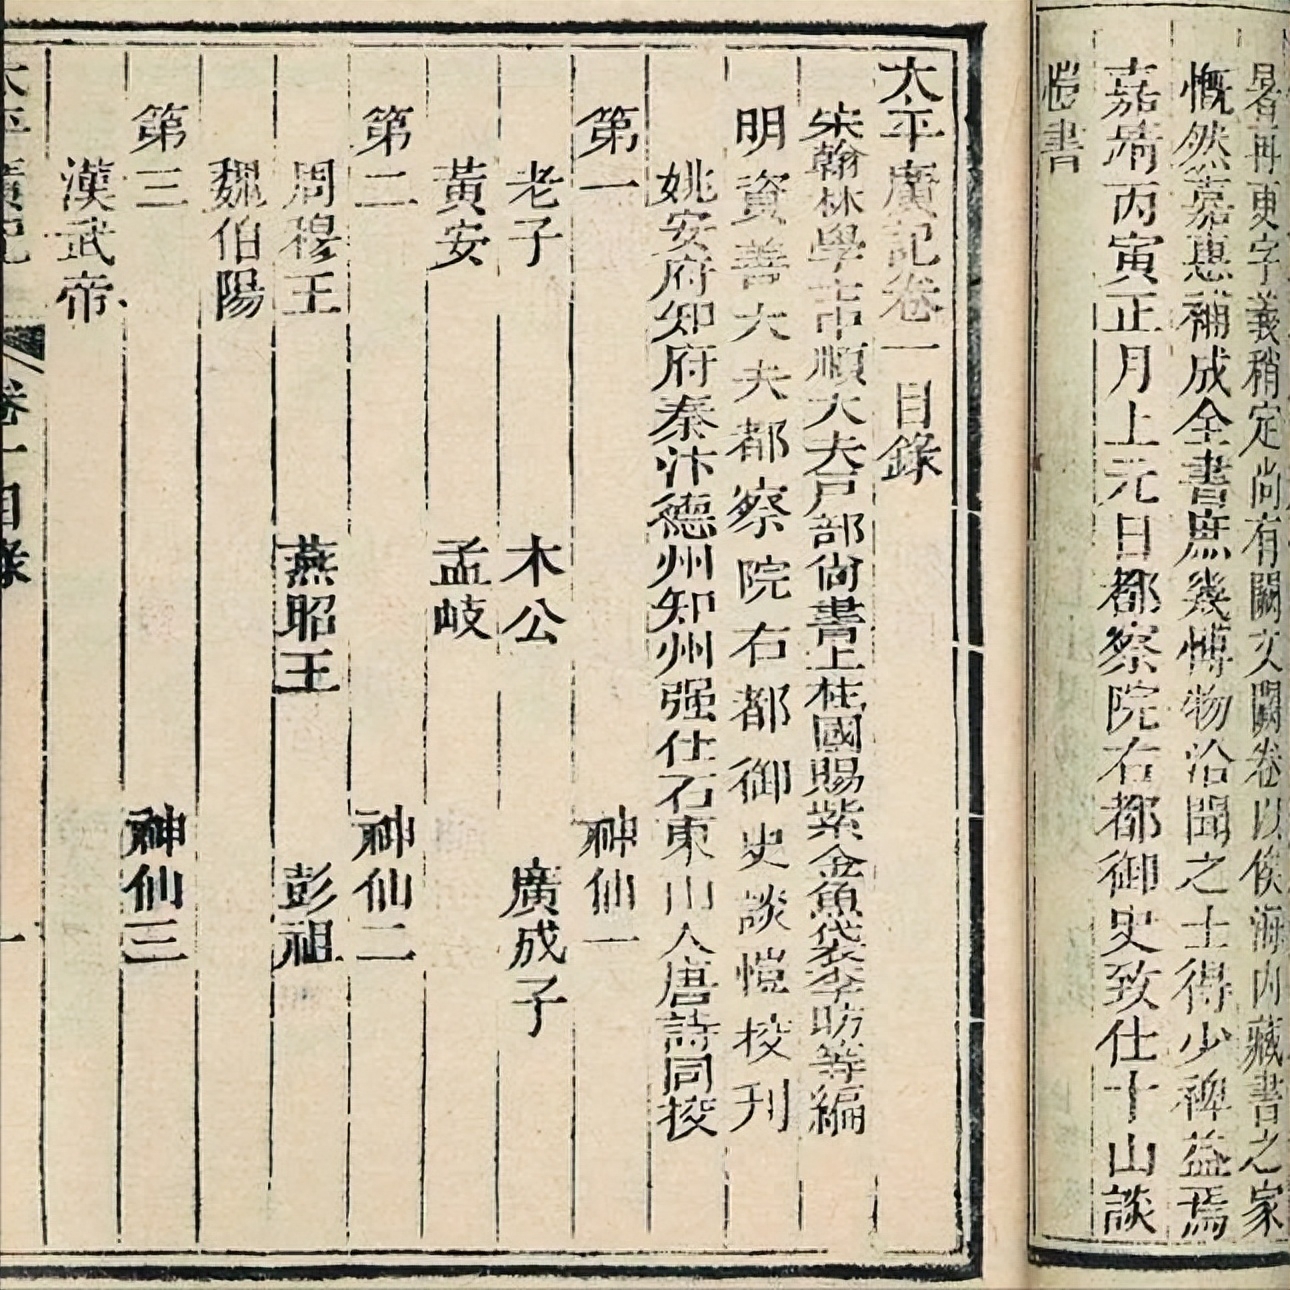 晷再更字義稍定尚有闕文闕卷以俟海内藏書之家
慨然嘉惠補成全書庶幾博物洽聞之士得少裨益焉
嘉靖丙寅正月上元日都察院右都御史致仕十山談
愷書
太平廣記卷一目錄
宋翰林學士中順大夫戸部尚書上柱國賜紫金魚袋李昉等編
明資善大夫都察院右都御史談愷校刋
姚安府知府秦汴德州知州强仕石東山人唐詩同挍
第一 神仙一
老子 木公 廣成子
黃安 孟岐
第二 神仙二
周穆王 燕昭王 彭祖
魏伯陽
第三 神仙三
漢武帝
太平廣記 卷一目錄 一